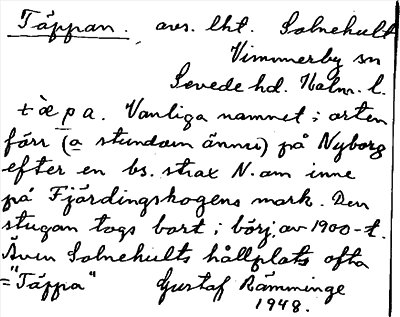 Täppan. avs. lht. Solnehult
Vimmerby sn
Sevede hd. Kalm. l.
tæ̀pa. Vanliga namnet i orten
förr (a stundom ännu) på Nyborg
efter en bs. strax N. om inne
på Fjärdingskogens mark. Den
stugan togs bort i börj. av 1900-t.
Även Solnehults hållplats ofta
="Täppa" Gustaf Rämminge
1948.